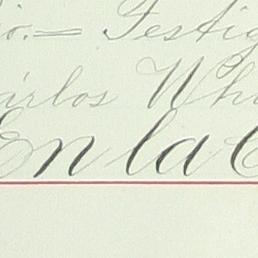 io.= Testig
árlos Wh
En la C